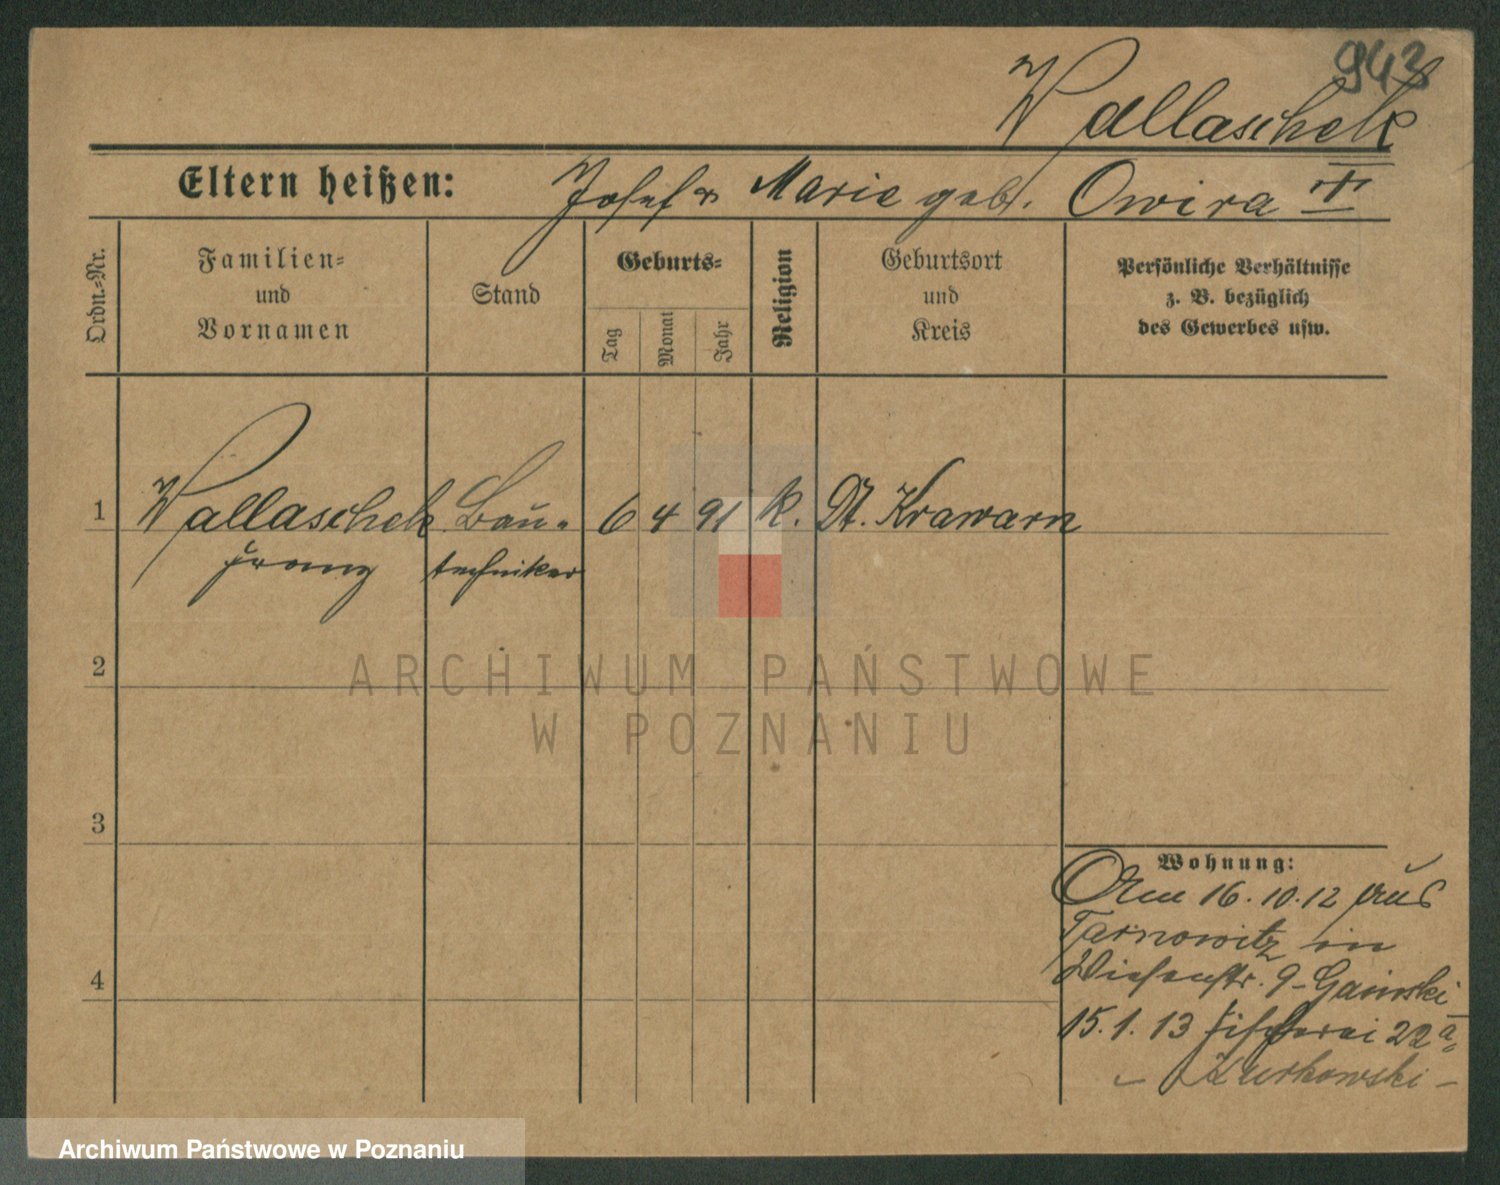 943
Wallaschek
Eltern heißen: Josef u Marie geb. Owira
Ordn.-Nr.
Familien-
und
Vornamen
Stand
Geburts-
Tag
Monat
Jahr
Religion
Geburtsort
und
Kreis
Persönliche Verhältnisse
z. B. bezüglich
des Gewerbes usw.
1 Wallaschek Bau- 6 4 91 k. Dt. Krawarn
Franz techniker
2
3
4
Wohnung:
Am 16.10.12 aus
Tarnowitz in
Wiesenstr. 9 -
15.1.13 Fischerei 22a
- Zurkowski -
ARCHIWUM PAŃSTWOWE
W POZNANIU
Archiwum Państwowe w Poznaniu